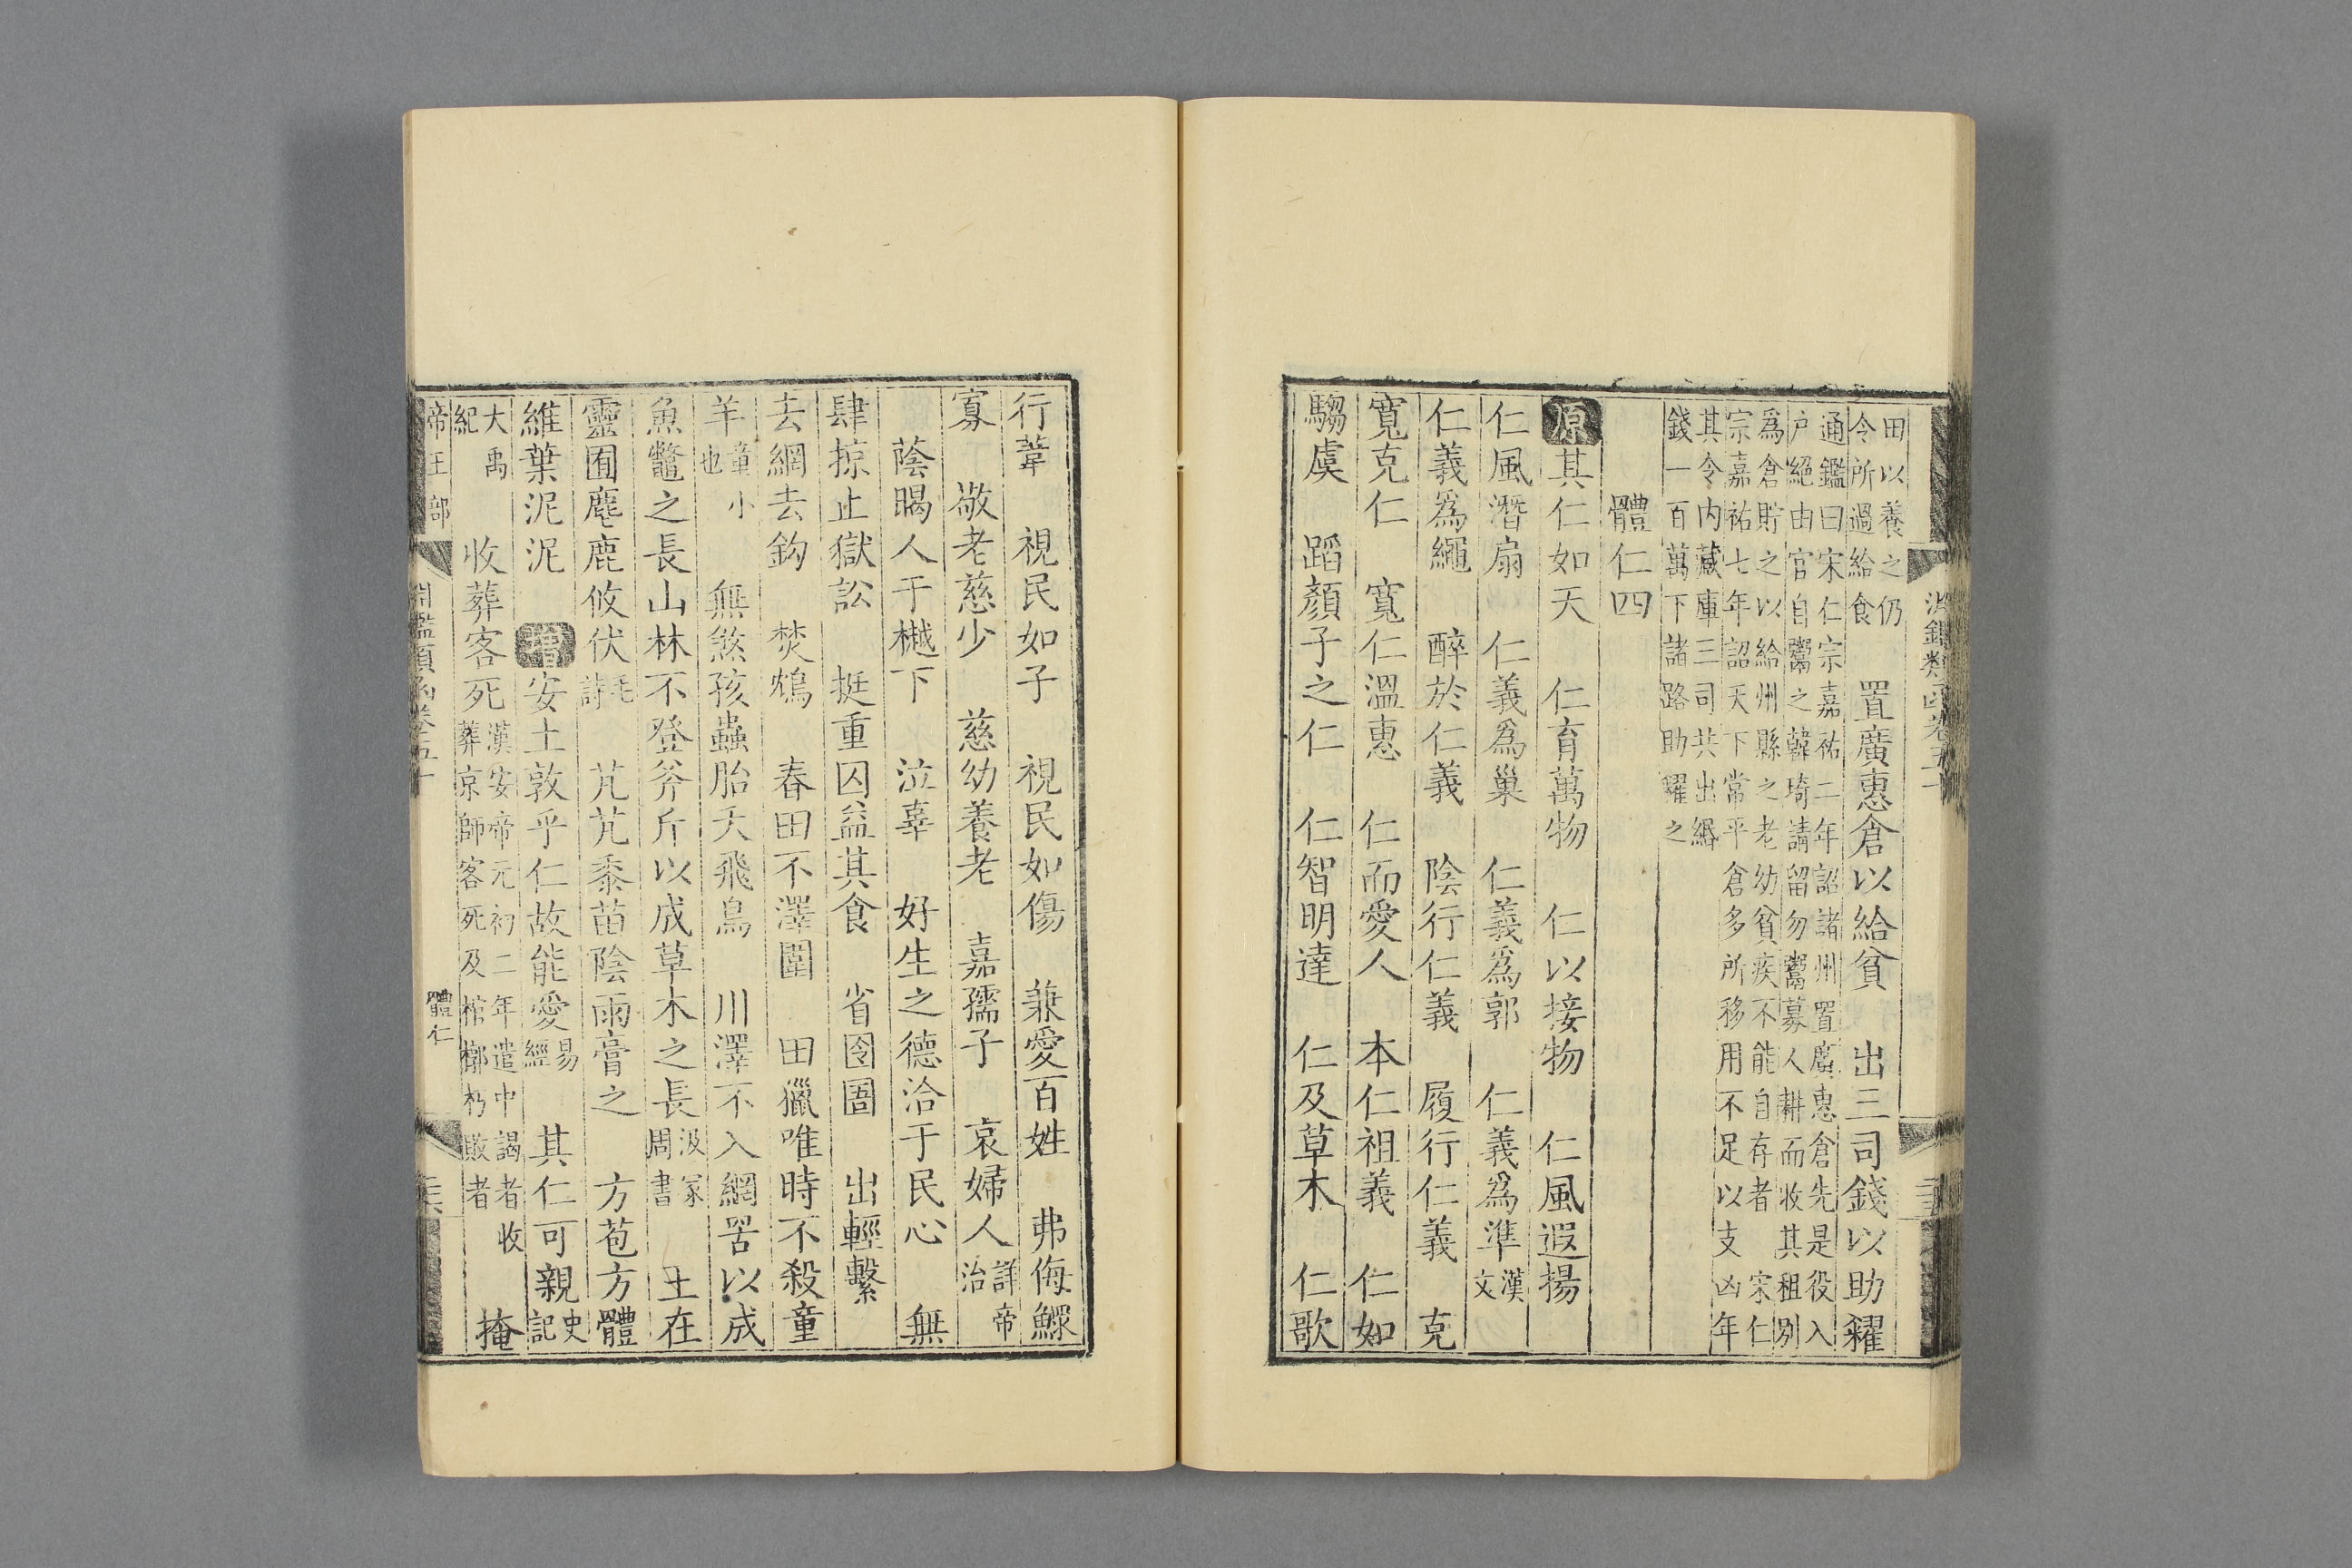 淵鑑類函卷五十
田以養之仍
令所過給食
置廣惠倉以給貧　出三司錢以助糴
通鑑曰宋仁宗嘉祐二年詔諸州置廣惠倉先是役入
户絕由官自鬻之韓琦請留勿鬻募人耕而收其租别
爲倉貯之以給州縣之老幼貧疾不能自存者　宋仁
宗嘉祐七年詔天下常平倉多所移用不足以支凶年
其令内藏庫三司共出緡
錢一百萬下諸路助糴之
體仁四
原其仁如天　仁育萬物　仁以接物　仁風遐揚
仁風潛扇　仁義爲巢　仁義爲郭　仁義爲準漢文
仁義爲繩　醉於仁義　陰行仁義　履行仁義　克
寬克仁　寬仁溫惠　仁而愛人　本仁祖義　仁如
騶虞　蹈顏子之仁　仁智明達　仁及草木　仁歌
行葦　視民如子　視民如傷　兼愛百姓　弗侮鰥
寡　敬老慈少　慈幼養老　嘉孺子　哀婦人詳帝治
蔭暍人于樾下　泣辜　好生之德洽于民心　無
肆掠止獄訟　挺重囚益其食　省囹圄　出輕繫
去網去鈎　焚鴆　春田不澤圍　田獵唯時不殺童
羊童小也　無煞孩蟲胎夭飛鳥　川澤不入網罟以成
魚鼈之長山林不登斧斤以成草木之長汲冢周書　王在
靈囿麀鹿攸伏毛詩　芃芃黍苗陰雨膏之　方苞方體
維葉泥泥　增安土敦乎仁故能愛易經　其仁可親史記
大禹紀　收葬客死漢安帝元初二年遣中謁者收葬京師客死及棺槨朽敗者　掩
帝王部
淵鑑類函卷五十
體仁